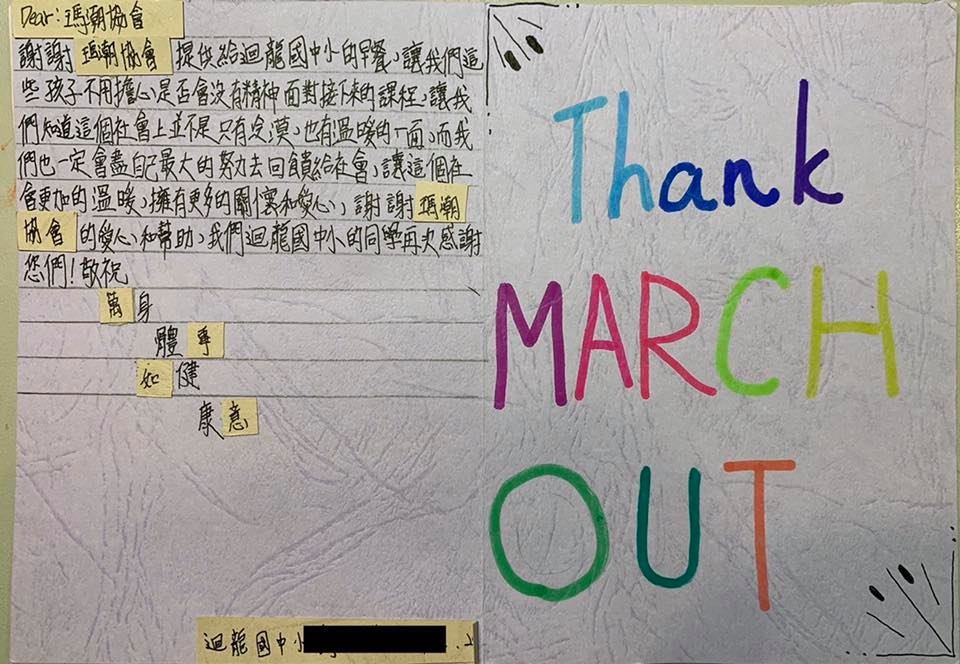 Dear:瑪潮協會
謝謝瑪潮協會提供給迴龍國中小的早餐,讓我們這
些孩子不用擔心是否會沒有精神面對接下來的課程,讓我
們知道這個社會上並不是只有冷漠,也有溫暖的一面,而我
們也一定會盡自己最大的努力去回饋給社會,讓這個社
會更加的溫暖,擁有更多的關懷和愛心,謝謝瑪潮
協會的愛心和幫助,我們迴龍國中小的同學再次感謝
您們!敬祝
萬身
體事
如健
康意
迴龍國中小
上
Thank
MARCH
OUT